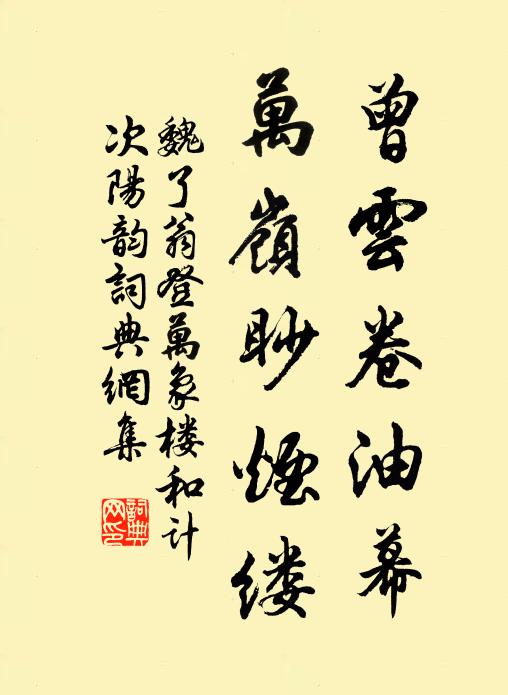 曾雲卷油幕
萬嶺眇煙缕
魏了翁登萬象楼和计
次陽韵詞典網集
詞典
网印